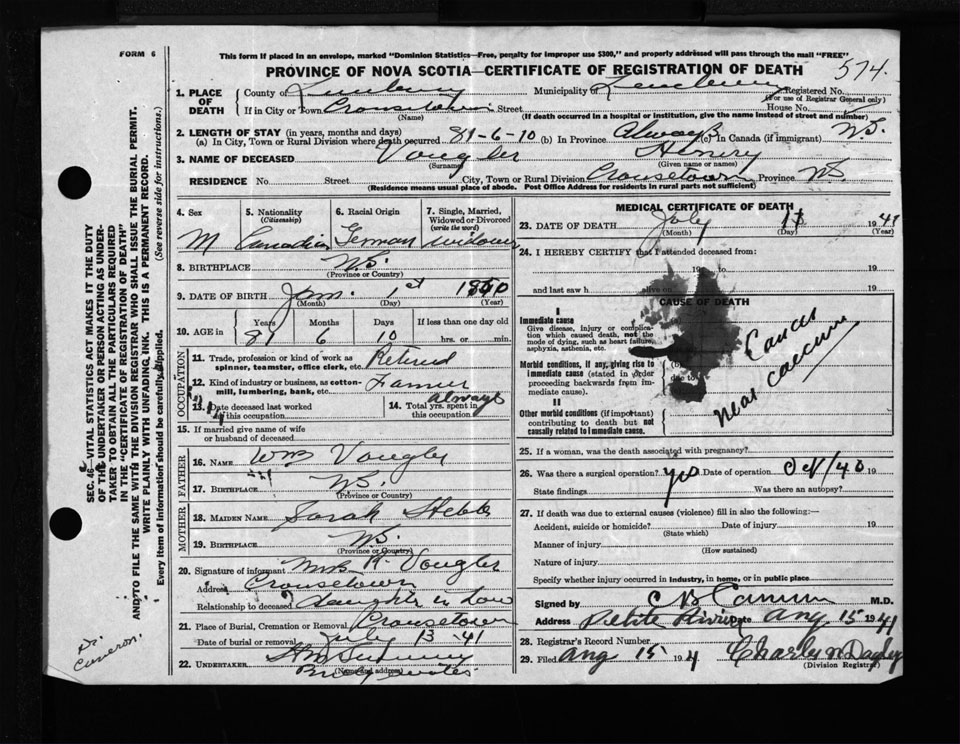 FORM 6
This form if placed in an envelope, marked "Dominion Statistics—Free, penalty for improper use $300," and properly addressed will pass through the mail "FREE"
PROVINCE OF NOVA SCOTIA—CERTIFICATE OF REGISTRATION OF DEATH
574.
1. PLACE OF DEATH County of Lunenburg Municipality of Lunenburg Registered No.
(For use of Registrar General only)
If in City or Town Crousetown Street House No.
(Name) (If death occurred in a hospital or institution, give the name instead of street and number)
2. LENGTH OF STAY (in years, months and days)
(a) In City, Town or Rural Division where death occurred 81-6-10 (b) In Province Always (c) In Canada (if immigrant) N.S.
3. NAME OF DECEASED Vaugler Henry
(Surname) (Given name or names)
RESIDENCE No. Street City, Town or Rural Division Crousetown Province N.S.
(Residence means usual place of abode. Post Office Address for residents in rural parts not sufficient)
SEC. 46—VITAL STATISTICS ACT MAKES IT THE DUTY
OF THE UNDERTAKER OR PERSON ACTING AS UNDER-
TAKER TO OBTAIN ALL THE PARTICULARS REQUIRED
IN THE "CERTIFICATE OF REGISTRATION OF DEATH"
AND TO FILE THE SAME WITH THE DIVISION REGISTRAR WHO SHALL ISSUE THE BURIAL PERMIT.
WRITE PLAINLY WITH UNFADING INK. THIS IS A PERMANENT RECORD.
Every item of information should be carefully supplied. (See reverse side for instructions.)
4. Sex 5. Nationality 6. Racial Origin 7. Single, Married,
(Citizenship) Widowed or Divorced
(write the word)
M Canadian German widower
8. BIRTHPLACE N.S.
(Province or Country)
9. DATE OF BIRTH Jan. 1st
(Month) (Day) (Year)
10. AGE in Years Months Days If less than one day old
81 6 10 hrs. or min.
OCCUPATION
11. Trade, profession or kind of work as
spinner, teamster, office clerk, etc. Retired
12. Kind of industry or business, as cotton-
mill, lumbering, bank, etc. Farmer
13. Date deceased last worked at this occupation
14. Total yrs. spent in this occupation always
15. If married give name of wife
or husband of deceased
FATHER
16. NAME Wm Vaugler
17. BIRTHPLACE N.S.
(Province or Country)
MOTHER
18. MAIDEN NAME Sarah Hebb
19. BIRTHPLACE N.S.
(Province or Country)
20. Signature of informant Mrs R. Vaugler
Address Crousetown
Relationship to deceased daughter in Law
21. Place of Burial, Cremation or Removal Crousetown
Date of burial or removal July 13-41
22. UNDERTAKER
(Name and address)
Dr.
Cameron.
MEDICAL CERTIFICATE OF DEATH
23. DATE OF DEATH July 1941
(Month) (Day) (Year)
24. I HEREBY CERTIFY that I attended deceased from:
19 to 19
and last saw h alive on 19
CAUSE OF DEATH
I
Immediate cause
Give disease, injury or complica-
tion which caused death, not the
mode of dying, such as heart failure,
asphyxia, asthenia, etc.
Morbid conditions, if any, giving rise to
immediate cause (stated in order
proceeding backwards from im-
mediate cause).
(b) due to
II
Other morbid conditions (if important)
contributing to death but not
causally related to immediate cause.
Cancer
near caecum
25. If a woman, was the death associated with pregnancy?
26. Was there a surgical operation? yes Date of operation Oct/40 19
State findings Was there an autopsy?
27. If death was due to external causes (violence) fill in also the following:
Accident, suicide or homicide? Date of injury 19
(State which)
Manner of injury
(How sustained)
Nature of injury
Specify whether injury occurred in industry, in home, or in public place
Signed by M.D.
Address Petite Riviere Date Aug 15 1941
28. Registrar's Record Number
29. Filed Aug 15 194
(Division Registrar)